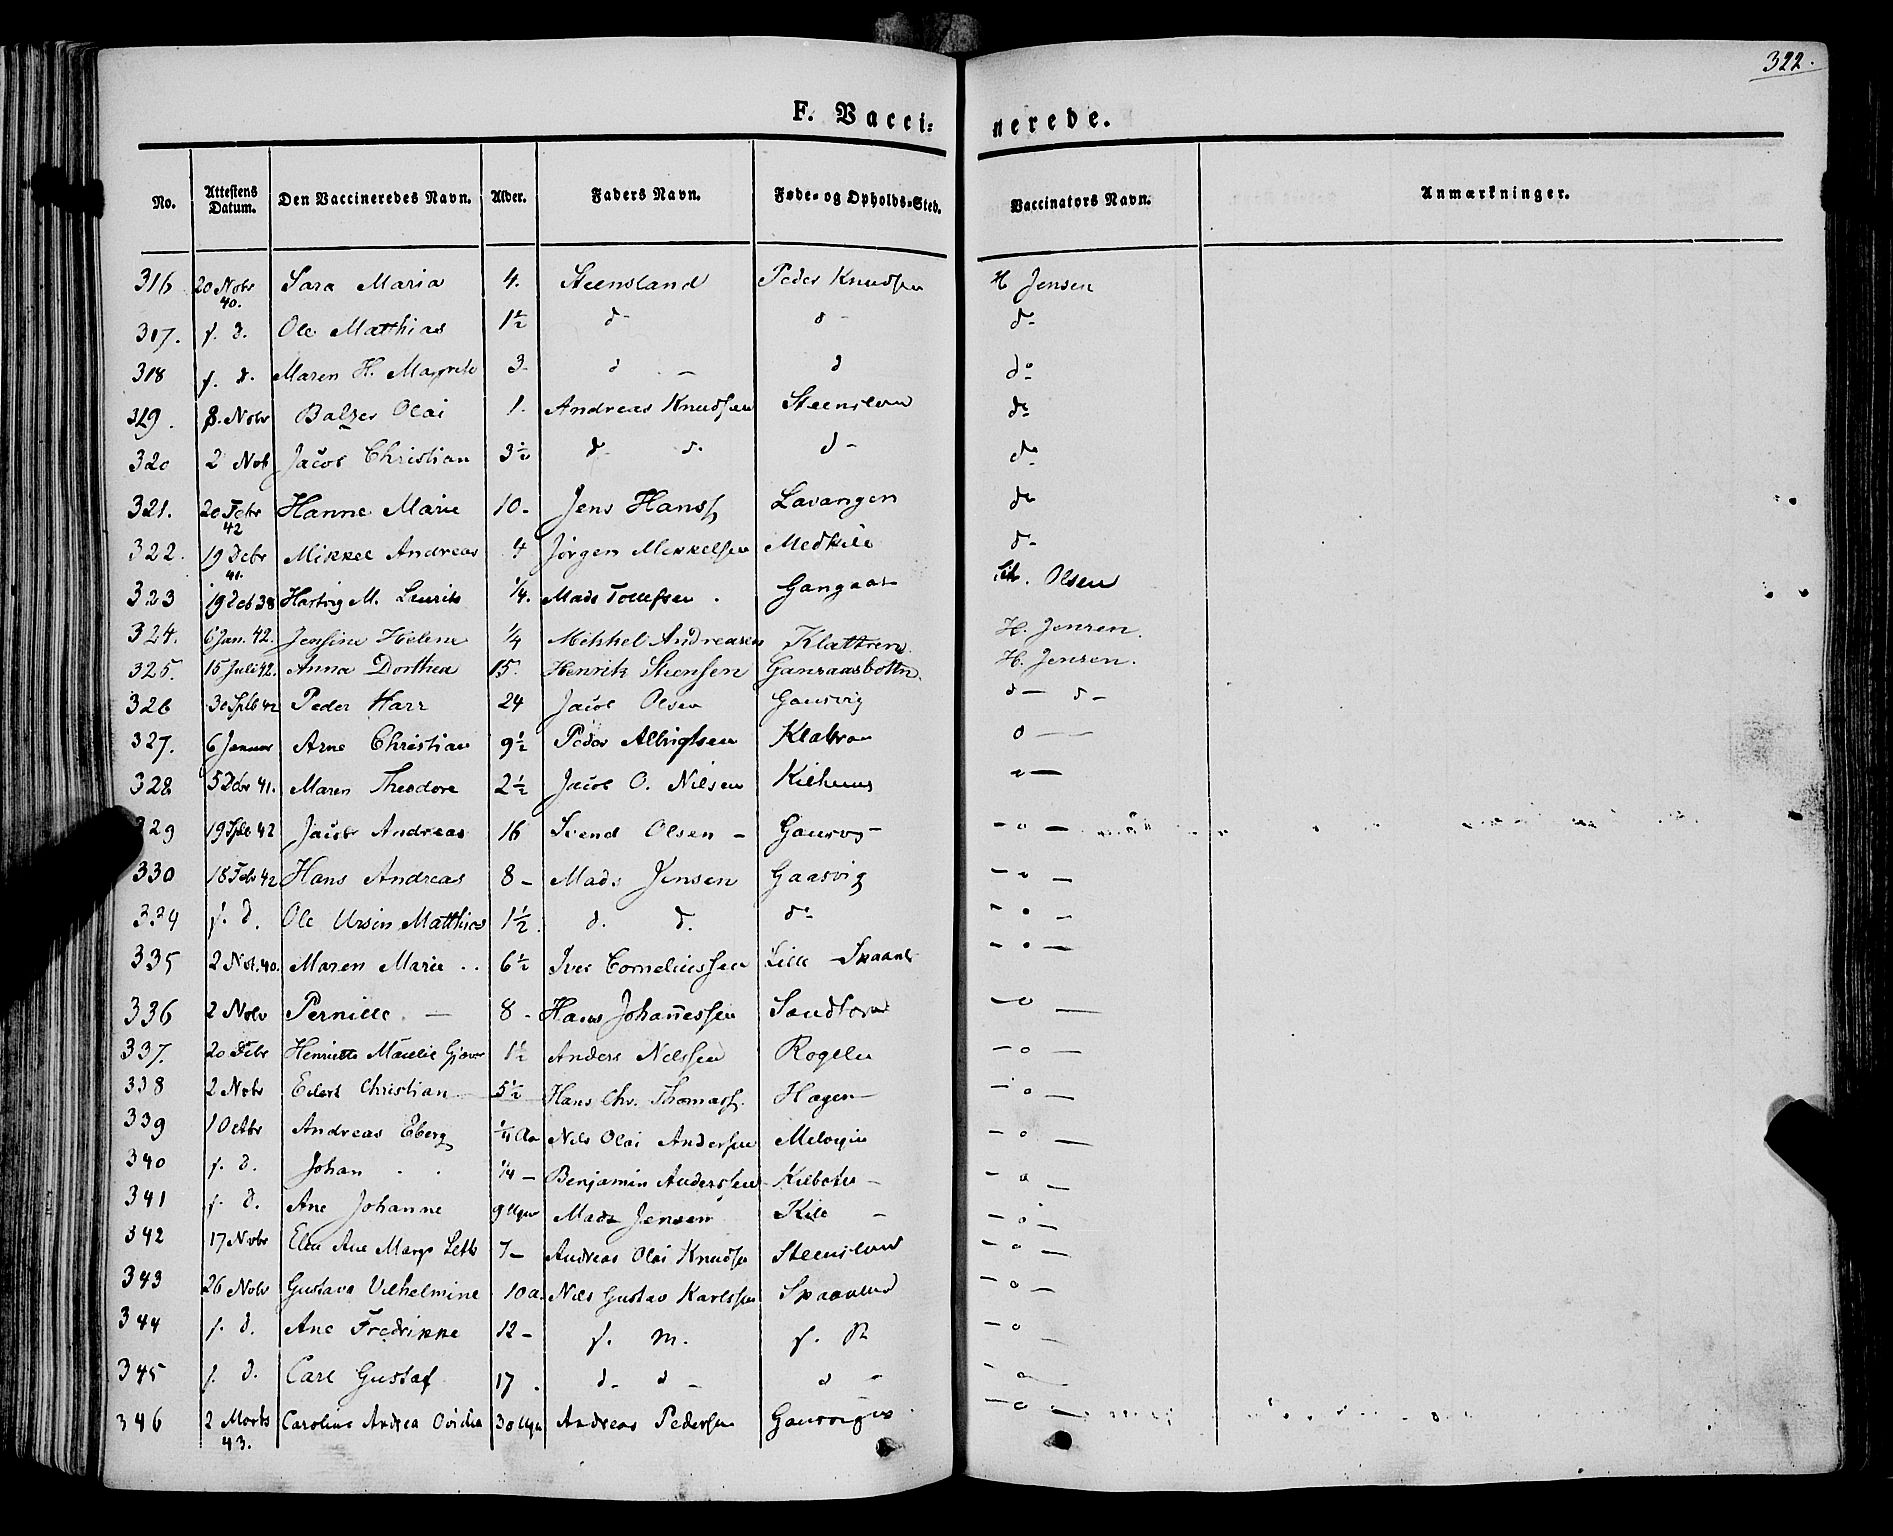 322.
F. Vacci: nerede.
No. Attestens Datum. Den Vaccineredes Navn. Alder. Faders Navn. Føde- og Opholds-Sted. Vaccinators Navn. Anmærkninger.
316 20 Nobr 40. Sara Maria 4. Steensland Peder Knudsen H Jensen
317. s. d. Ole Matthias 1½ d- d- do
318 s. d. Maren H. Magrete 3- d - d do
319. 8. Nobr Balzer Olai 1. Andreas Knudsen do
320 2 Nob Jacob Christian 3½ d- d. d- do
321. 20 Febr 42 Hanne Marie 10- Jens Hanss Lavangen do
322. 19 Debr 41. Mikkel Andreas 4 Jørgen Mikkelsen Medkile d-
323 19 38 Hartvig M. Lauritz ¼. Mads Tollefsen . Gangaas Olsen
324. 6 Jan. 42. Jensine Helene ¼ Mikkel Andreasen Klattren. H. Jensen.
325. 15 Juli 42. Anna Dorthea 15. Henrik Steensen Gansaasbottn. H. Jensen.
326 30 Sptb 42 Peder Harr 24 Jacob Olsen Gausvig d- d-
327. 6 Januar Arne Christian 9½ Peder Albrigtsen Klatran o -
328 5 Debr 41. Maren Theodore 2½ Jacob O. Nilsen Kilhuus o -
329 19 Sptb 42 Jacob Andreas 16 Svend Olsen - - o -
330 18 Feb 42 Hans Andreas 8- Mads Jensen Gaasvig - o -
334 s. d. Ole Ursin Matthias 1½. d. d. do - o -
335 2 Nob. 40. Maren Marie .. 6½ Iver Corneliussen Lille - - o -
336 2 Nobr Pernille. - 8- Hans Johannessen Sandtorv - o -
337. 20 Febr Henriette Gjæver 1½ Anders Nilssen - o -
338 2 Nobr Edert Christian 5½ Hans Chr. Thomass. Hagen- - o -
339 1 Octbr Andreas Eberg Nils Olai Andersen - o -
340 s. d. Johan . . ¼- Benjamin Anderssen Kilboten- - o -
341 s. d. Ane Johanne 9 Uger Mads Jensen Kile - - o -
342 17 Nobr Elen Ane Margr 7- Andreas Olai Knudsen - o -
343 26 Nobr Gustava Vilhelmine 10 a. Nils Gustav Karlssen - o -
344 s. d. Ane Fredrikke 12- s. M. s. - o -
345 s. d. Carl Gustaf 17. d- d- d - - o -
346 2 Marts 43. Caroline Andrea Ovidia 30 Uger Andreas Pedersen - o -